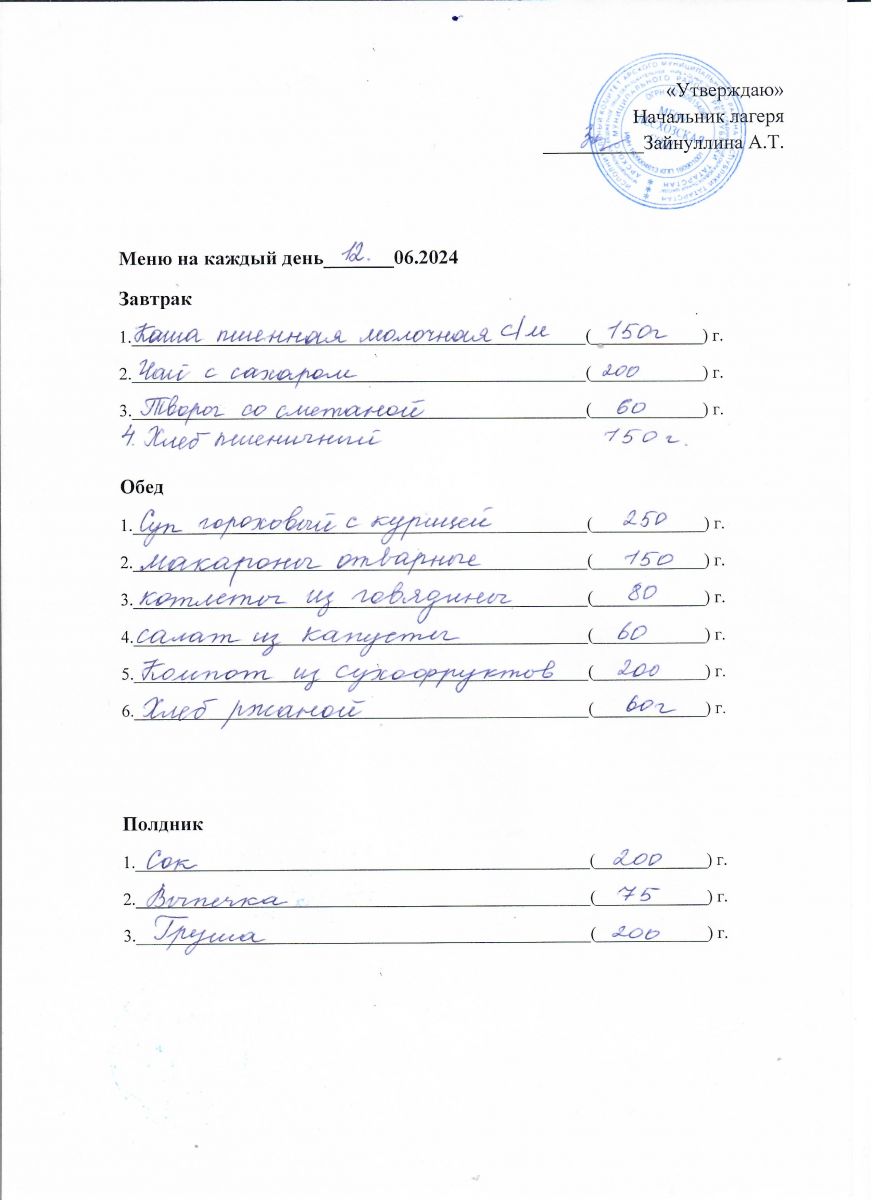 «Утверждаю»
Начальник лагеря
Зайнуллина А.Т.
Меню на каждый день 12. 06.2024
Завтрак
1. Каша пшенная молочная с/м ( 150г ) г.
2. Чай с сахаром ( 200 ) г.
3. Творог со сметаной ( 60 ) г.
4. Хлеб пшеничный 150 г.
Обед
1. Суп гороховый с курицей ( 250 ) г.
2. макароны отварные ( 150 ) г.
3. котлеты из говядины ( 80 ) г.
4. салат из капусты ( 60 ) г.
5. Компот из сухофруктов ( 200 ) г.
6. Хлеб ржаной ( 60г ) г.
Полдник
1. Сок ( 200 ) г.
2. Выпечка ( 75 ) г.
3. Груша ( 200 ) г.